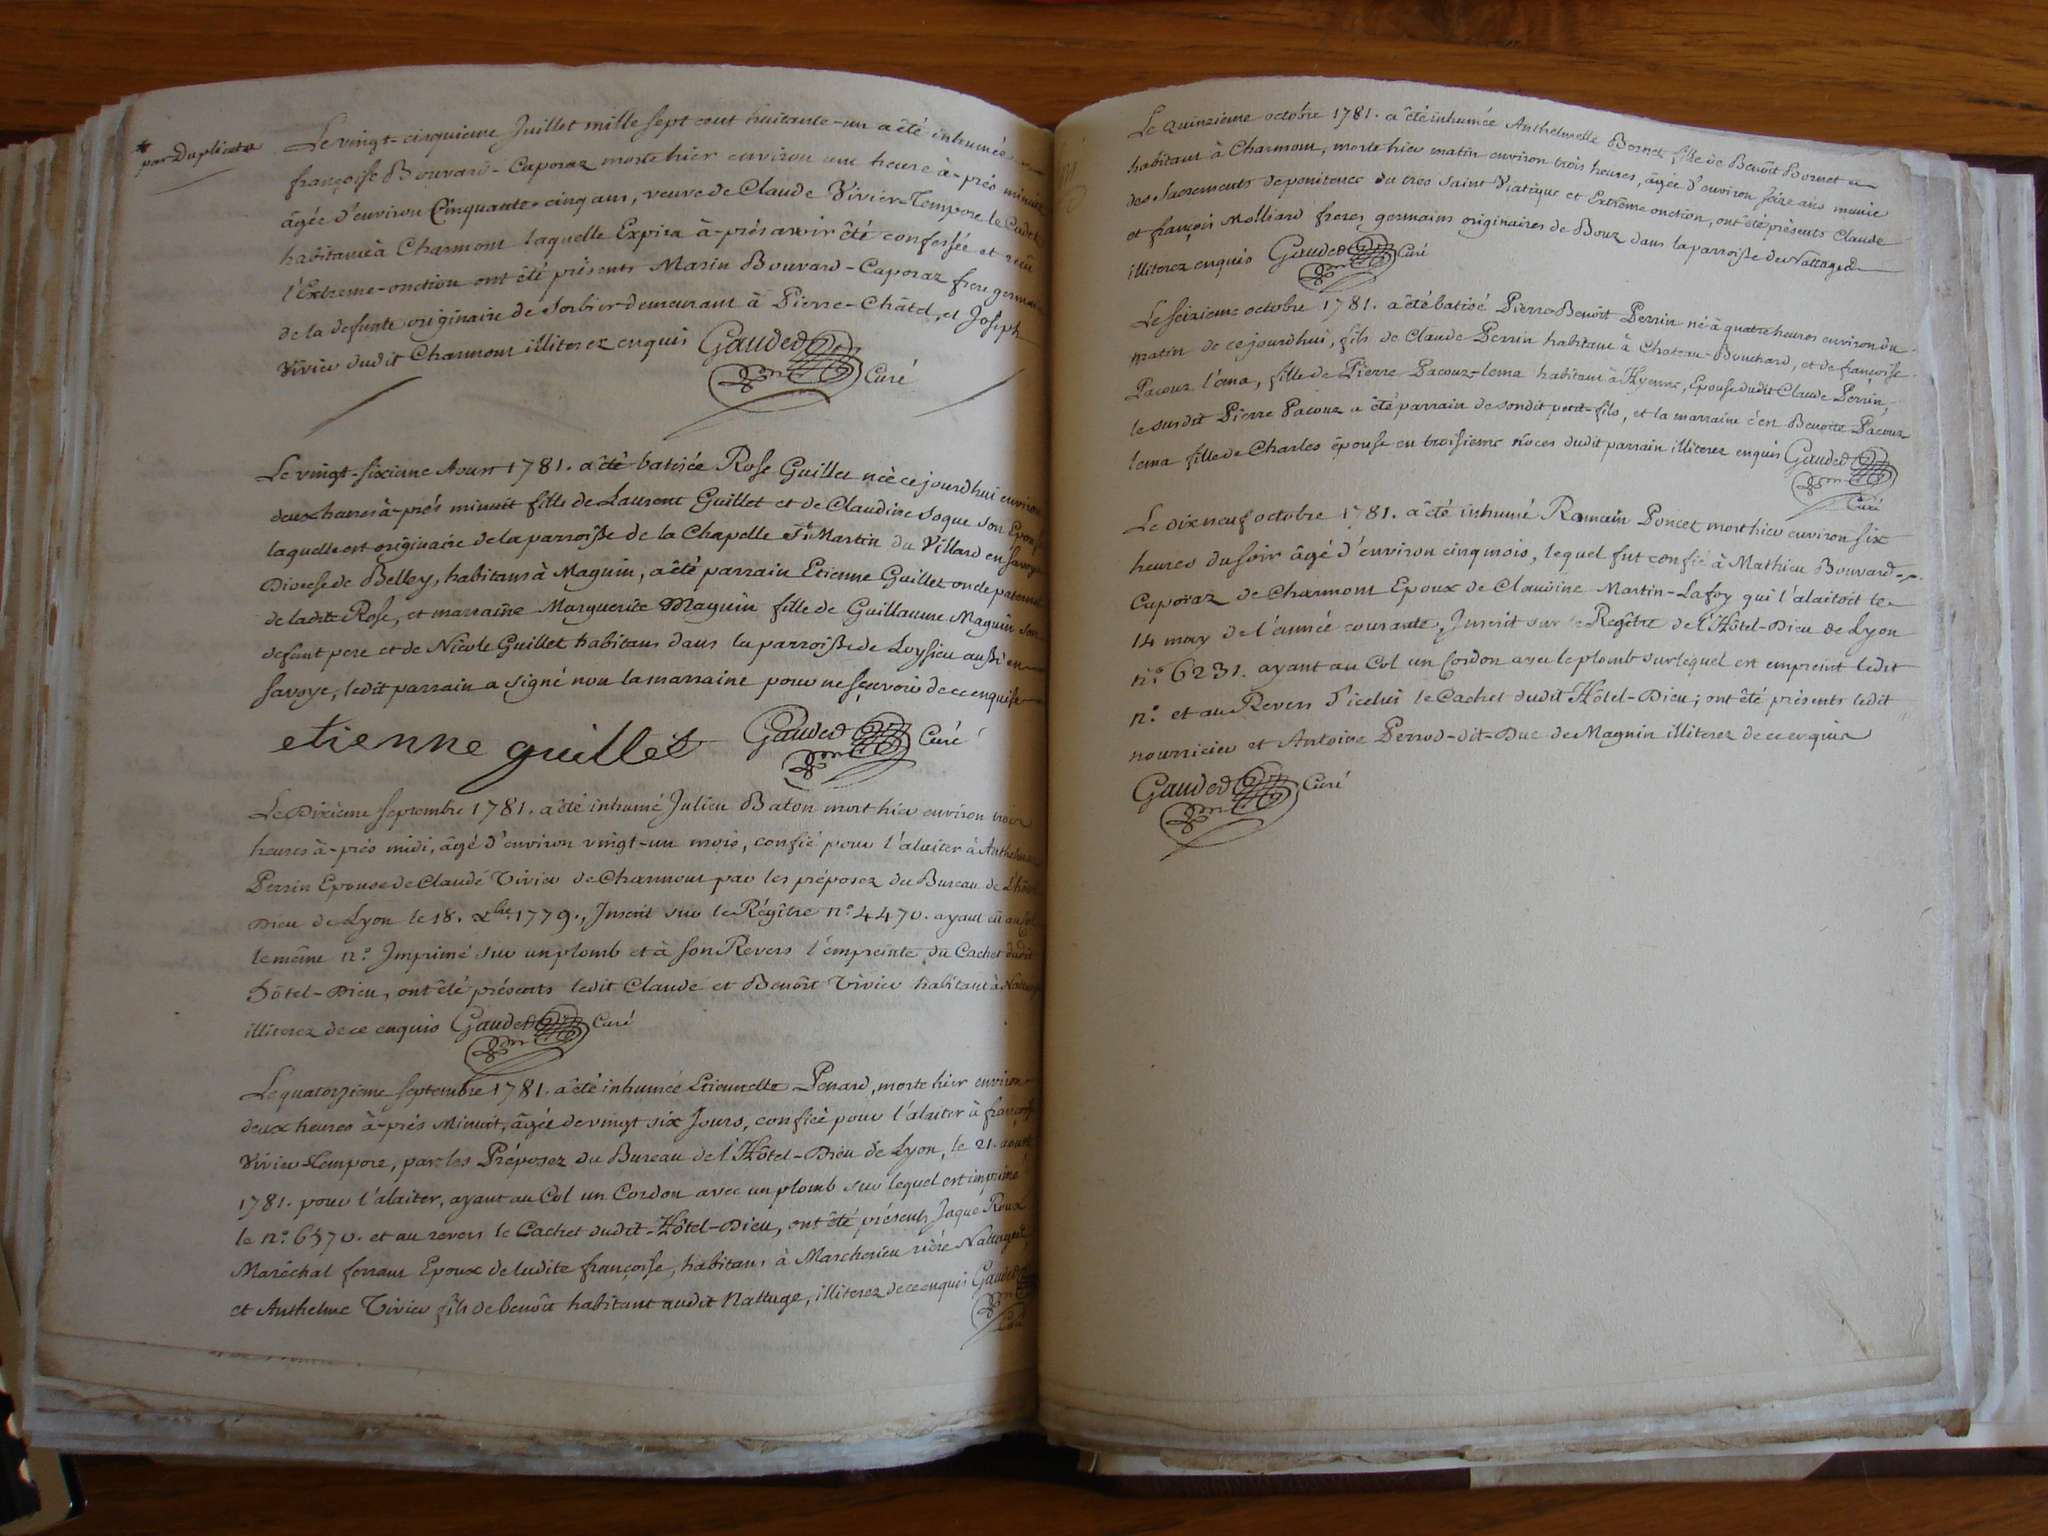 * par Duplicata
Le vingt-cinquieme Juillet mille sept cent huitante-un a êté inhumée
françoise Bouvard-Caporaz morte hier environ une heure à-prés minuit
âgée d'environ Cinquante-cinq ans, veuve de Claude Vivier-Tempore le Cadet
habitante à Charmont laquelle Expira à-prés avoir êté confessée et reçu
l'Extreme-onction ont êté présents Marin Bouvard-Caporaz frere germain
de la defunte originaire de Sorbier demeurant à Pierre-Châtel, et Joseph
Vivier dudit Charmont illiterez enquis Gauded Curé
Le vingt-sixieme Aoust 1781. a êté batisée Rose Guillet née ce jourdhui environ
deux heures à-prés minuit fille de Laurent Guillet et de Claudine Soque son Epouse
laquelle est originaire de la parroisse de la Chapelle St Martin du Villard en Savoye
Diocese de Belley, habitans à Magnin, a êté parrain Etienne Guillet oncle paternel
de ladite Rose, et marraine Marguerite Magnin fille de Guillaume Magnin son
defunt pere et de Nicole Guillet habitans dans la parroisse de Loysieu aussi en
Savoye, ledit parrain a signé non la marraine pour ne sçavoir de ce enquise
etienne guillet Gauded Curé
Le Dixieme septembre 1781. a êté inhumé Julien Baton mort hier environ trois
heures à-prés midi, âgé d'environ vingt-un mois, confié pour l'alaiter à Anthelmette
Perrin Epouse de Claude Vivier de Charmont par les préposez du Bureau de L'hôtel
Dieu de Lyon le 18. Xbre 1779., Inscrit sur le Régître n.° 4470. ayant eü au Col
le même n.° Imprimé sur un plomb et à son Revers l'empreinte du Cachet dudit
hôtel-Dieu, ont êté présents ledit Claude et Benoît Vivier habitant à Nattage
illiterez de ce enquis Gauded Curé
Le quatorzieme septembre 1781. a êté inhumée Etiennette Penard, morte hier environ
deux heures à-prés Minuit, âgée de vingt six Jours, confiée pour l'alaiter à françoise
Vivier-Tempore, par les Préposez du Bureau de l'Hôtel-Dieu de Lyon, le 21. aoust
1781. pour l'alaiter, ayant au Col un Cordon avec un plomb sur lequel est imprimé
le n.° 6570. et au revers le Cachet dudit-Hôtel-Dieu, ont êté présents Jaque Roux
Maréchal ferrant Epoux de ladite françoise, habitans à Marcherieu riére Nattage
et Anthelme Vivier fils de benoît habitant audit Nattage, illiterez de ce enquis Gauded
Curé
Le Quinzieme octobre 1781. a êté inhumée Anthelmette Bornet, fille de Benoît Bornet
habitant à Charmont, morte hier matin environ trois heures, âgée d'environ seize ans munie
des Sacrements de penitence du tres Saint Viatique et Extrême onction, ont êté présents Claude
et françois Molliard freres germains originaires de Bouz dans la parroisse de Nattage
illiterez enquis Gauded Curé
Le seizieme octobre 1781. a êté batisé Pierre-Benoît Perrin né à quatre heures environ du
matin de ce jourdhui, fils de Claude Perrin habitant à Chateau-Bouchard, et de françoise
Pacouz l'ama, fille de Pierre Pacouz-lema habitant à Hyenne, Epouse dudit Claude Perrin,
le susdit Pierre Pacouz a êté parrain de sondit petit-fils, et la marraine c'est Benoîte Pacouz
lema fille de Charles épouse en troisieme nôces dudit parrain illiterez enquis Gauded
Curé
Le dix neuf octobre 1781. a êté inhumé Romain Poncet mort hier environ six
heures du soir âgé d'environ cinq mois, lequel fut confié à Mathieu Bouvard-
Caporaz de Charmont Epoux de Claudine Martin-Lafoy qui l'alaitoit le
14 may de l'année courante, Inscrit sur le Regître de l'Hôtel-Dieu de Lyon
n.° 6231. ayant au Col un Cordon avec le plomb sur lequel est empreint ledit
n.° et au Revers d'icelui le Cachet dudit Hôtel-Dieu; ont êté présents ledit
nourricier et Antoine Perrod-dit-Duc de Magnin illiterez de ce enquis
Gauded Curé